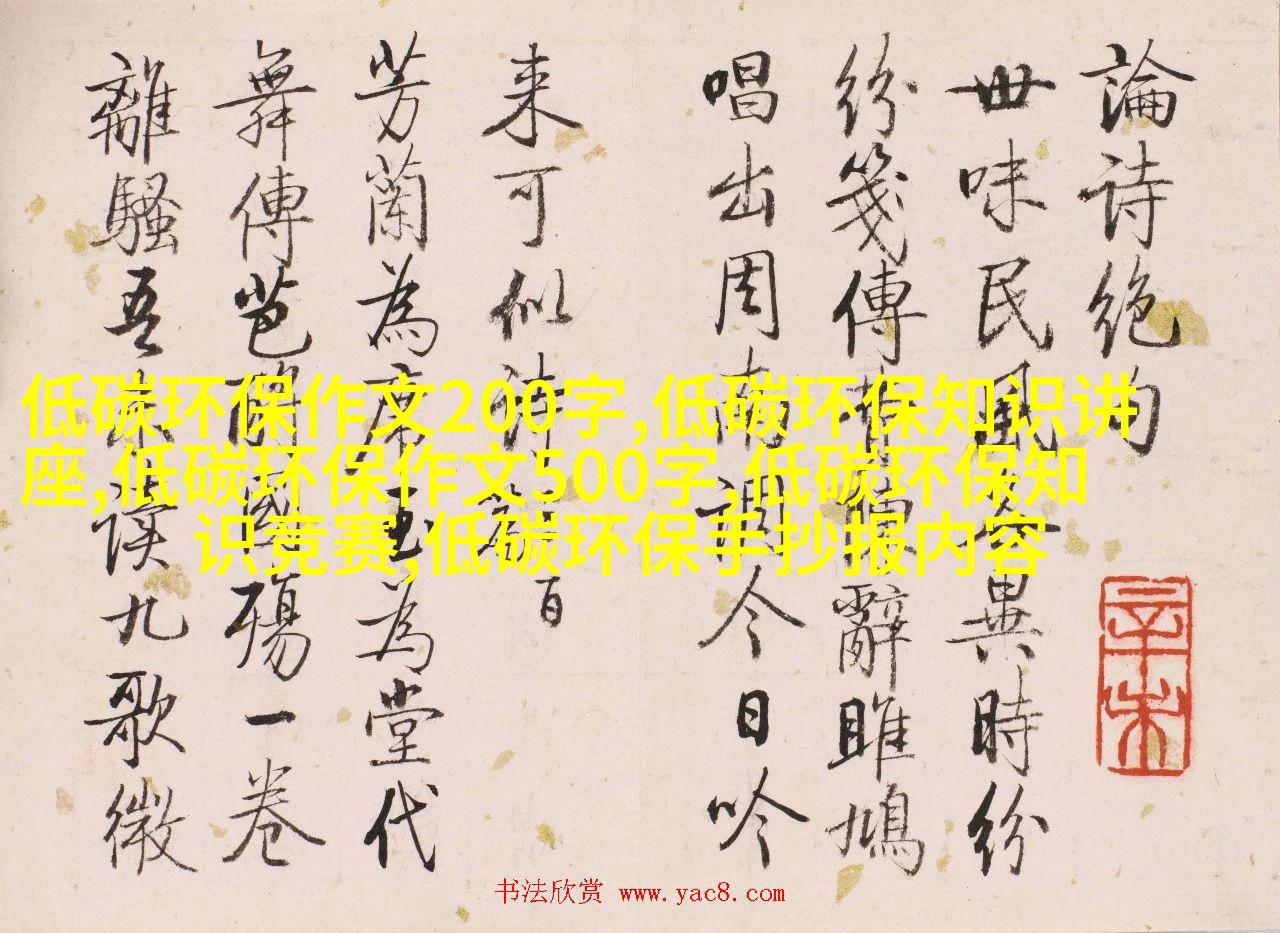 論詩絕句
世味民風各異時紛
紛箋傳辭雎鳩
唱出周南調今日吟
来可似詩百
芳蘭為席玉為堂代
舞傳芭酹國殤一卷
離騷吾讀九歌微
辛未
低碳环保作文200字,低碳环保知识讲
座,低碳环保作文500字,低碳环保知
识竞赛,低碳环保手抄报内容
书法欣赏 www.yac8.com